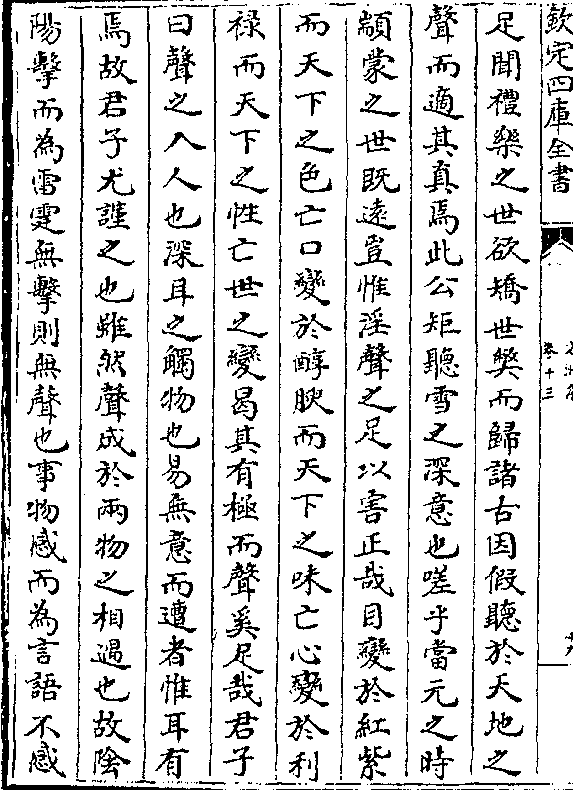 欽定四庫全書
卷十三
足聞禮樂之世欲矯世樊而歸諸古因假聽於天地之
聲而適其真焉此公矩聽雪之深意也嗟乎當元之時
顓蒙之世既遠豈惟淫聲之足以害正哉目變於紅紫
而天下之色亡口變於醇腴而天下之味亡心變於利
祿而天下之性亡世之變曷其有極而聲奚足哉君子
曰聲之入人也深耳之觸物也易無意而遭者惟耳有
焉故君子尤謹之也雖然聲成於兩物之相遇也故陰
陽擊而為雷霆無擊則無聲也事物感而為言語不感